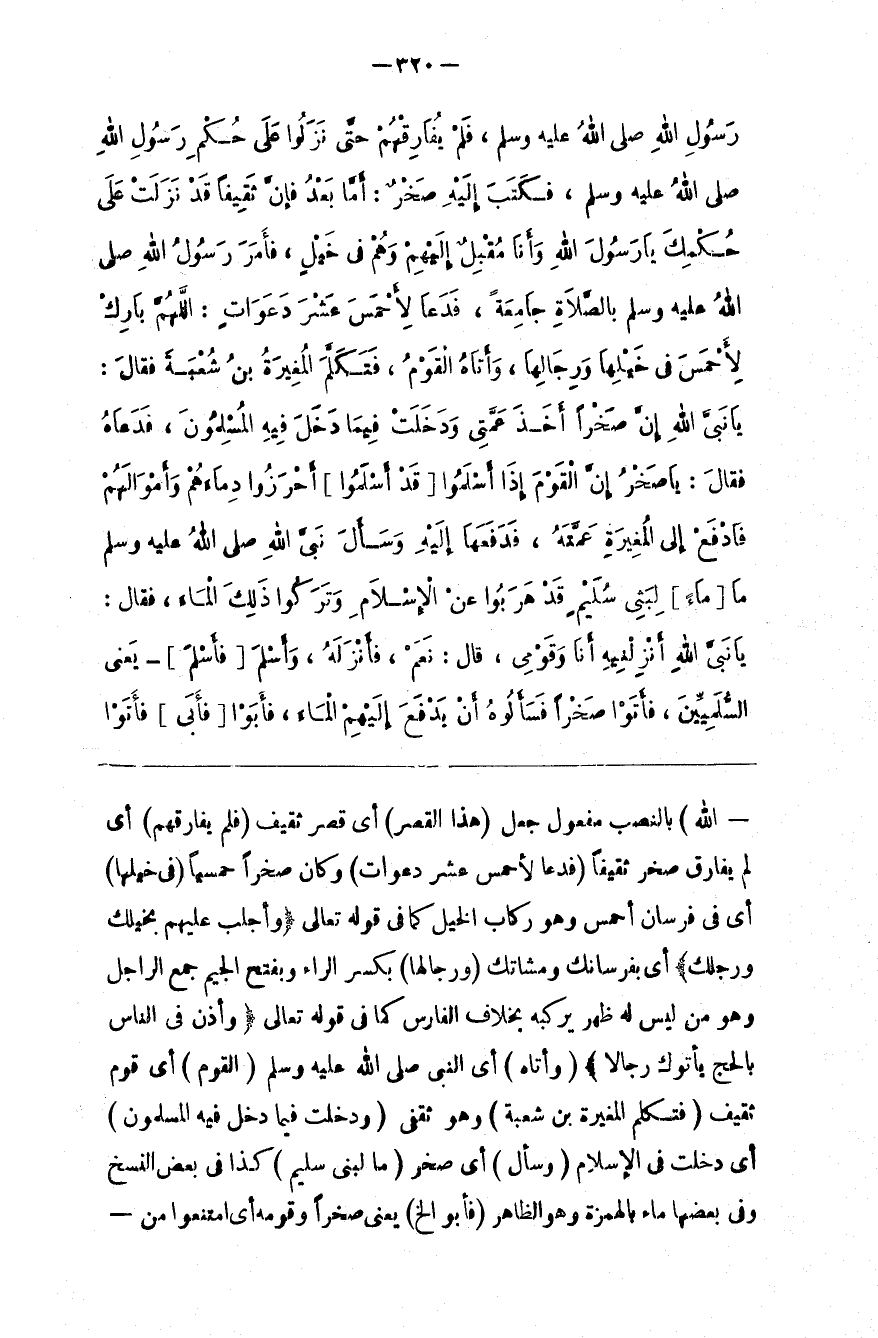 — ٣٢٠ —
رَسُولِ اللهِ صلى اللهُ عليه وسلم ، فَلَمْ يُفَارِقْهُمْ حتَّى نَزَلُوا عَلَى حُـكْمِ رَسُولِ اللهِ
صلى اللهُ عليه وسلم ، فـكَتَبَ إلَيْهِ صَخْرٌ : أمَّا بَعْدُ فإنَّ ثَقِيفاً قَدْ نَزَلَتْ عَلَى
حُـكْمِكَ يارَسُولَ اللهِ وَأنَا مُقْبِلٌ إلَيْهِمْ وَهُمْ فى خَيْلٍ ، فأمَرَ رَسُولُ اللهِ صلى
اللهُ عليه وسلم بالصَّلَاةِ جامِعَةً ، فَدَعَا لِأَحْمَسَ عَشْرَ دَعَوَاتٍ : اللَّهُمَّ بارِكْ
لِأَحْمَسَ فى خَيْلِها وَرِجَالِها ، وَأتَاهُ الْقَوْمُ ، فَتَـكَلَّمَ المُغِيرَةُ بنُ شُعْبَـةَ فقالَ :
يانَبىَّ اللهِ إنَّ صَخْراً أخَـذَ عَمَّتِى وَدَخَلَتْ فِيمَا دَخَلَ فِيهِ المُسْلِمُونَ ، فَدَعاهُ
فقالَ : ياصَخْرُ إنَّ الْقَوْمَ إذَا أسْلَمُوا [ قَدْ أسْلَمُوا ] أحْرَزُوا دِماءهُمْ وَأمْوَالَهُمْ
فَادْفَعْ إلى المُغِيرَةِ عَمَّتَهُ ، فَدَفَعَهَا إلَيْهِ وَسَـألَ نَبىَّ اللهِ صلى اللهُ عليه وسلم
ما [ ماءً ] لِبَنِى سُلَيْمٍ قَدْ هَرَبُوا عنْ الْإسْـلَامِ وَتَرَكُوا ذَلِكَ المَـاء ، فقال :
يانَبىَّ اللهِ أنْزِلْنِيهِ أنَا وَقَوْمِى ، قال : نَعَمْ ، فأنْزَلَهُ ، وَأسْلَمَ [ فأسْلَمَ ] ــ يَعنى
السُّلَمِيِّينَ ، فأتَوْا صَخْراً فَسَألُوهُ أنْ يَدْفَعَ إلَيْهِمْ الْمَـاء ، فأبَوْا [ فأبَى ] فأتَوْا
— الله ) بالنصب مفعول جعل (هذا القصر) أى قصر ثقيف (فلم يفارقهم) أى
لم يفارق صخر ثقيفاً (فدعا لأحمس عشر دعوات) وكان صخراً حمسياً (فى خيلها)
أى فى فرسان أحمس وهو ركاب الخيل كما فى قوله تعالى ﴿وأجلب عليهم بخيلك
ورجلك﴾ أى بفرسانك ومشاتك (ورجالها) بكسر الراء وبفتح الجيم جمع الراجل
وهو من ليس له ظهر يركبه بخلاف الفارس كما فى قوله تعالى ﴿ وأذن فى الناس
بالحج يأتوك رجالا ﴾ ( وأتاه ) أى النبى صلى الله عليه وسلم ( القوم ) أى قوم
ثقيف ( فتـكلم المغيرة بن شعبة ) وهو ثقفى ( ودخلت فيما دخل فيه المسلمون )
أى دخلت فى الإسلام ( وسأل ) أى صخر ( ما لبنى سليم ) كـذا فى بعض النسخ
وفى بعضها ماء بالهمزة وهو الظاهر (فأبو الخ) يعنى صخراً وقومه أى امتنعوا من —